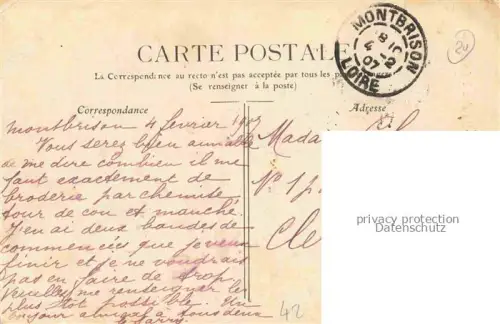 CARTE POSTALE
La Correspondance au recto n'est pas acceptée par tous les pa
(Se renseigner à la poste)
Correspondance
Adresse
MONTBRISON
LOIRE
4 -2
07
24
Montbrison 4 fevrier 1907
Vous serez bien aimable
de me dire combien il me
faut exactement de
broderie par chemise
tour de cou et manche.
J'en ai deux bandes de
commencées que je veux
finir et je ne voudrais
pas en faire de trop.
Veuillez me renseigner le
plus tôt possible. Un
bonjour amical à tous deux
Madam
N° 1
Cle
42
privacy protection
Datenschutz